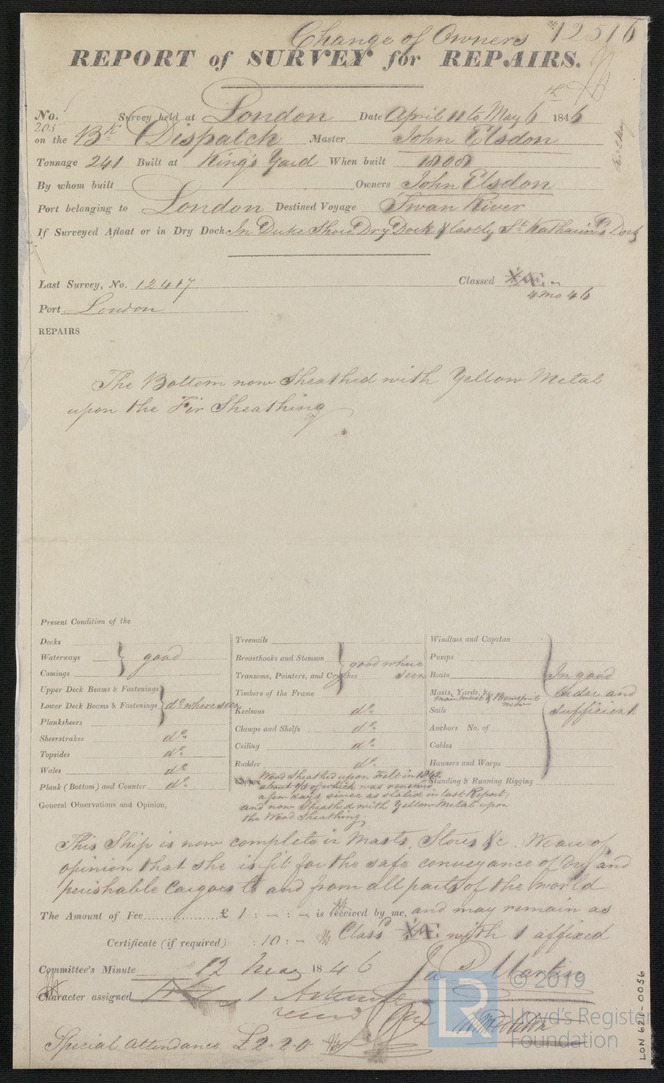 Change of Owners 12516
REPORT of SURVEY for REPAIRS.
No. 203 Survey held at London Date April 11 to May 6th 1846
on the Bk Dispatch Master John Elsdon
Tonnage 241 Built at King's Yard When built 1808
By whom built Owners John Elsdon
Port belonging to London Destined Voyage Swan River
If Surveyed Afloat or in Dry Dock In Duke Shore Dry Dock & lastly St Katharine's Dock
Last Survey, No. 12417 Classed
4 mo 46
Port London
REPAIRS
The Bottom now Sheathed with Yellow Metal
upon the Fir Sheathing
Present Condition of the
Decks
Waterways good
Comings
Upper Deck Beams & Fastenings
Lower Deck Beams & Fastenings do where seen
Planksheers
Sheerstrakes do
Topsides do
Wales do
Plank (Bottom) and Counter do
Treenails
Breasthooks and Stemson good where seen
Transoms, Pointers, and Crutches
Timbers of the Frame
Keelsons do
Clamps and Shelfs do
Ceiling do
Rudder do
Windlass and Capstan
Pumps
Boats In good
Masts, Yards, &c. order and
main mast & Bowsprit new
Sails sufficient
Anchors No. of
Cables
Hawsers and Warps
Standing & Running Rigging
Wood Sheathed upon Felt in 1842
about of which was renewed
a few days since as stated in last Report,
and now Sheathed with Yellow Metal upon
the Wood Sheathing.
General Observations and Opinion,
This Ship is now complete in Masts, Stores &c. We are of
opinion that she is fit for the safe conveyance of Dry and
perishable Cargoes to and from all parts of the world
The Amount of Fee £ 1 : - : - is received by me, and may remain as
Class with 1 affixed
Certificate (if required) : 10 : -
Committee's Minute 12 May 1846
Jas Martin
Character assigned 1
Special Attendance £2.2.0
© 2019
Lloyd's Register
Foundation
LON 624-0056